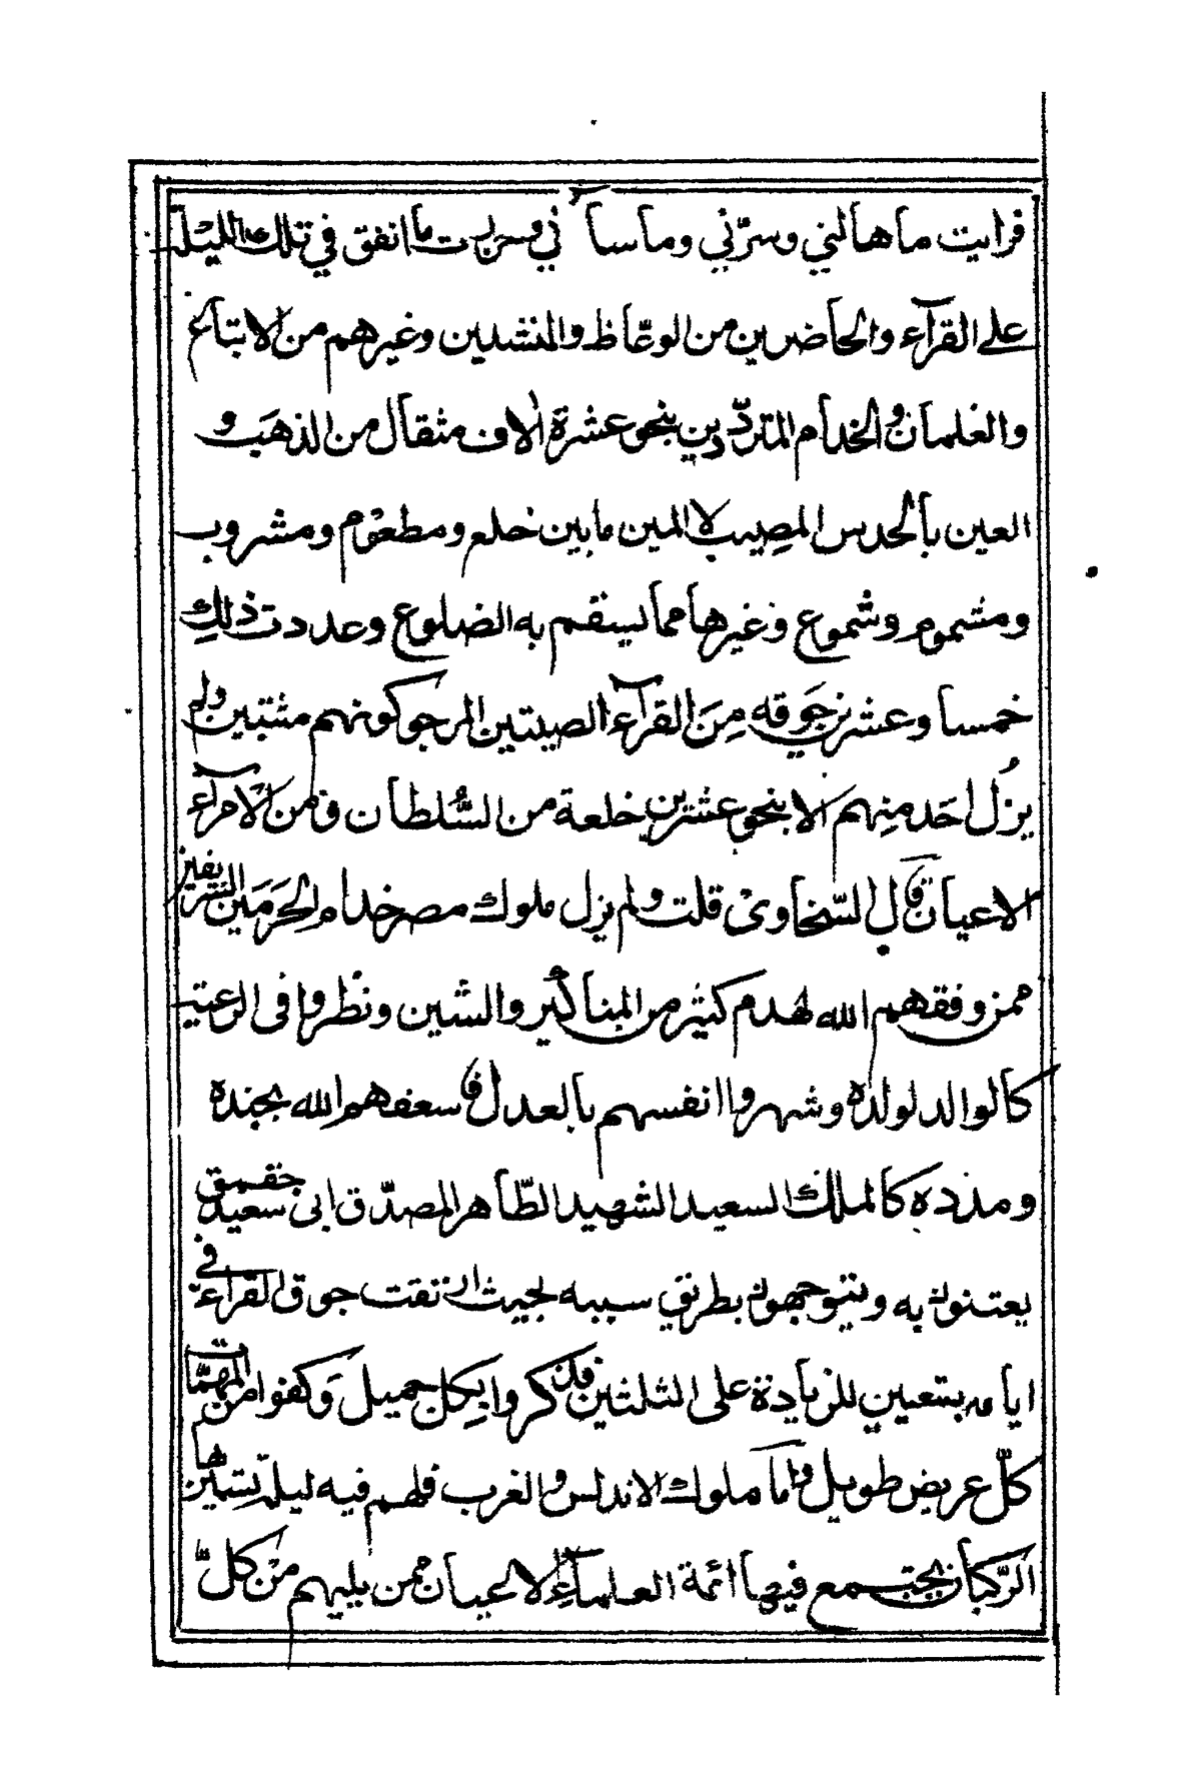 فرايت ما هالني وسرّني وما ساءني وحررت ما انفق في تلك الليلة
على القرآء والحاضرين من الوعّاظ والمنشدين وغيرهم من الاتباع
والغلمان والخدام المتردّدين بنحو عشرة الاف مثقال من الذهب و
العين بالحدس المصيب لا المين ما بين خلع ومطعوم ومشروب
ومشموم وشموع وغيرها مما يستقم به الضلوع وعددت ذلك
خمسا وعشرين جَوقه مِنَ القرآء الصيتين المرجو كونهم مثبتين ولم
يزُل احَد منهم الا بنحو عشرين خلعة من السُّلطان ومن الأمرآء
الاعيان قال السّخاوىْ قلت ولم يزل ملوك مصر خدام الحَرَمَين الشريفين
ممن وفقهم الله لهدم كثير من المناكير والشين ونظروا فى الرعية
كالوالد لولده وشهروا انفسهم بالعدل فاسعفهم الله بجنده
ومدده كالملك السعيد الشهيد الظاهر المصدّق ابى سعيد جقمق
يعتنون به ويتوجهون بطريق سببه بحيث ارتقت جوق القرآء فى
ايامه بتسعين للزيادة على الثلثين فذكروا بكل جميل وَكفوا من المهمّات
كلّ عريض طويل وامآ ملوك الاندلس والغرب فلهم فيه ليلة تسير بها
الرّكبان يجتمع فيها ائمة العلمآء الاعيان ممن يليهم من كلّ